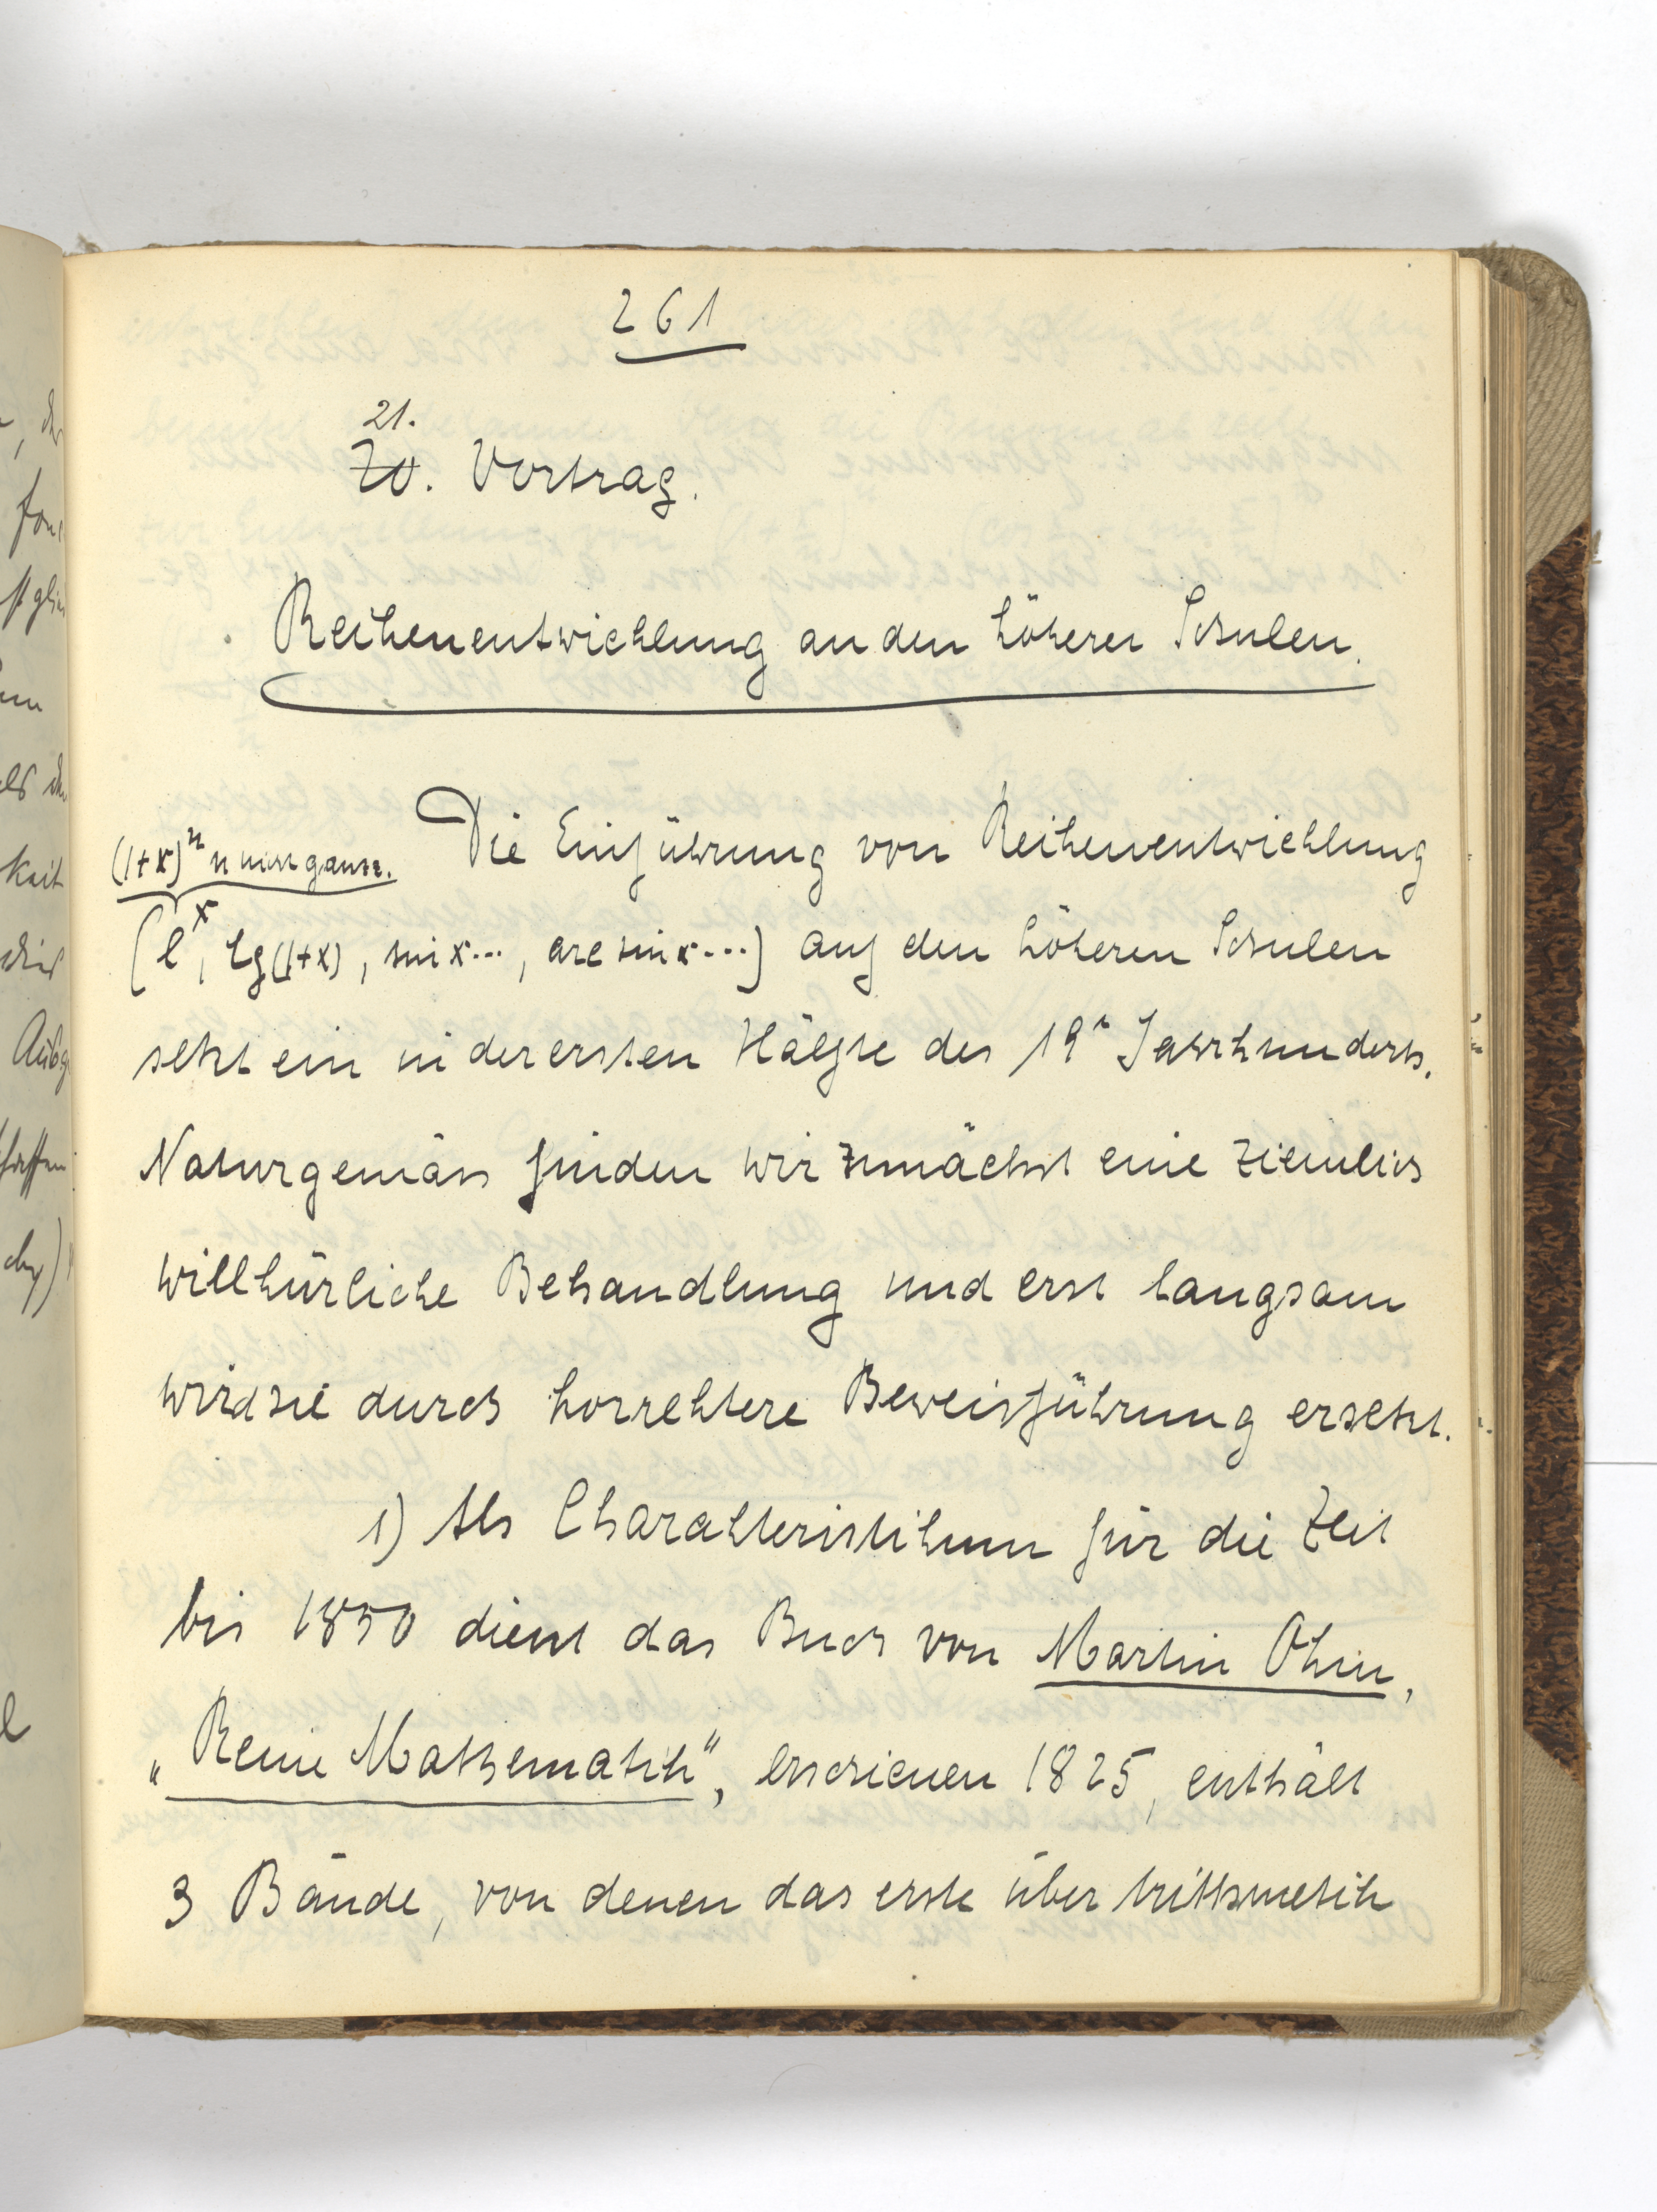 261
21.
20. Vortrag.
Reihenentwicklung an den höheren Schulen.
Die Einführung von Reihenentwicklung
(1+x)^n n nicht ganz.
(e^x, lg(1+x), sin x..., arc sin x...) auf den höheren Schulen
setzt ein in der ersten Hälfte des 19. Jahrhunderts.
Naturgemäss finden wir zunächst eine ziemlich
willkürliche Behandlung und erst langsam
wird sie durch korrektere Beweisführung ersetzt.
1) Als Charakteristikum für die Zeit
bis 1850 dient das Buch von Martin Ohm,
„Reine Mathematik", erschienen 1825, enthält
3 Bände, von denen das erste über Arithmetik